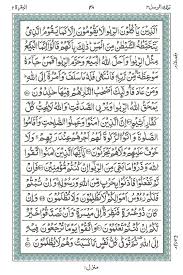 تلك الرسل ٣
البقرة ٢
اَلَّذِيْنَ يَاْكُلُوْنَ الرِّبٰوا لَا يَقُوْمُوْنَ اِلَّا كَمَا يَقُوْمُ الَّذِيْ
يَتَخَبَّطُهُ الشَّيْطٰنُ مِنَ الْمَسِّ ذٰلِكَ بِاَنَّهُمْ قَالُوْۤا اِنَّمَا الْبَيْعُ
مِثْلُ الرِّبٰوا وَاَحَلَّ اللّٰهُ الْبَيْعَ وَحَرَّمَ الرِّبٰوا فَمَنْ جَآءَهٗ
مَوْعِظَةٌ مِّنْ رَّبِّهٖ فَانْتَهٰى فَلَهٗ مَا سَلَفَ وَاَمْرُهٗۤ اِلَى اللّٰهِ
وَمَنْ عَادَ فَاُولٰٓئِكَ اَصْحٰبُ النَّارِ هُمْ فِيْهَا خٰلِدُوْنَ يَمْحَقُ
اللّٰهُ الرِّبٰوا وَيُرْبِي الصَّدَقٰتِ وَاللّٰهُ لَا يُحِبُّ كُلَّ
كَفَّارٍ اَثِيْمٍ اِنَّ الَّذِيْنَ اٰمَنُوْا وَعَمِلُوا الصّٰلِحٰتِ وَاَقَامُوا
الصَّلٰوةَ وَاٰتَوُا الزَّكٰوةَ لَهُمْ اَجْرُهُمْ عِنْدَ رَبِّهِمْ وَلَا خَوْفٌ
عَلَيْهِمْ وَلَا هُمْ يَحْزَنُوْنَ يٰۤاَيُّهَا الَّذِيْنَ اٰمَنُوا اتَّقُوا اللّٰهَ
وَذَرُوْا مَا بَقِيَ مِنَ الرِّبٰۤوا اِنْ كُنْتُمْ مُّؤْمِنِيْنَ فَاِنْ لَّمْ
تَفْعَلُوْا فَاْذَنُوْا بِحَرْبٍ مِّنَ اللّٰهِ وَرَسُوْلِهٖ وَاِنْ تُبْتُمْ
فَلَكُمْ رُءُوْسُ اَمْوَالِكُمْ لَا تَظْلِمُوْنَ وَلَا تُظْلَمُوْنَ وَاِنْ
كَانَ ذُوْ عُسْرَةٍ فَنَظِرَةٌ اِلٰى مَيْسَرَةٍ وَاَنْ تَصَدَّقُوْا خَيْرٌ
لَّكُمْ اِنْ كُنْتُمْ تَعْلَمُوْنَ وَاتَّقُوْا يَوْمًا تُرْجَعُوْنَ فِيْهِ
اِلَى اللّٰهِ ثُمَّ تُوَفّٰى كُلُّ نَفْسٍ مَّا كَسَبَتْ وَهُمْ لَا يُظْلَمُوْنَ
منزل ١